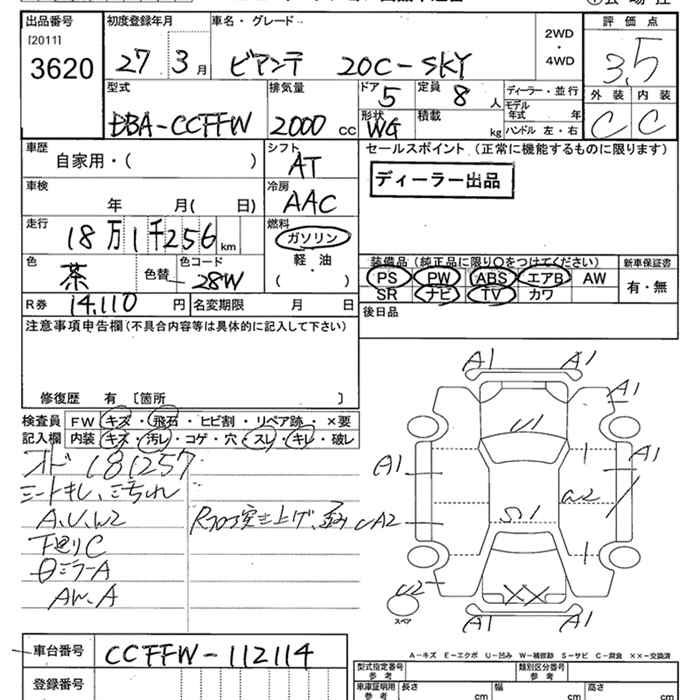 出品番号 初度登録年月 車名・グレード 評価点
[2011]
3620
27年 3月 ビアンテ 20C-SKY
2WD
・
4WD
3.5
型式 排気量 ドア 定員 ディーラー・並行 外装 内装
DBA-CCFFW 2000 cc 5 8 人
モデル年式 年
形状 積載
WG kg ハンドル 左・右 C C
車歴 シフト セールスポイント (正常に機能するものに限ります)
自家用・( ) AT
ディーラー出品
車検 冷房
年 月( 日) AAC
走行 燃料
18万1千256 km ガソリン
軽油
( ・ )
装備品 (純正品に限り○をつけてください) 新車保証書
色 色替 色コード
茶 28W
PS PW ABS エアB AW 有・無
SR ナビ TV カワ
R券 14,110 円 名変期限 月 日
後日品
注意事項申告欄(不具合内容等は具体的に記入して下さい)
修復歴 有 〔箇所 〕
検査員 FW キズ・飛石・ヒビ割・リペア跡・×要
記入欄 内装 キズ・汚レ・コゲ・穴・スレ・キレ・破レ
オド 181257
シートキレ、こゲ汚れ
A,U,W2
下廻りC
ミラーA
AW.A
Rフロア突き上げ、
A1 A1
A1
U1
A1 A1
W2
S1
A2
U2
XX
A1 A1
スペア
A-キズ E-エクボ U-凹み W-補修跡 S-サビ C-腐食 XX-交換済
車台番号 CCFFW-112114
登録番号
型式指定番号 参考 類別区分番号 参考
車庫証明用 参考 長さ cm 幅 cm 高さ cm